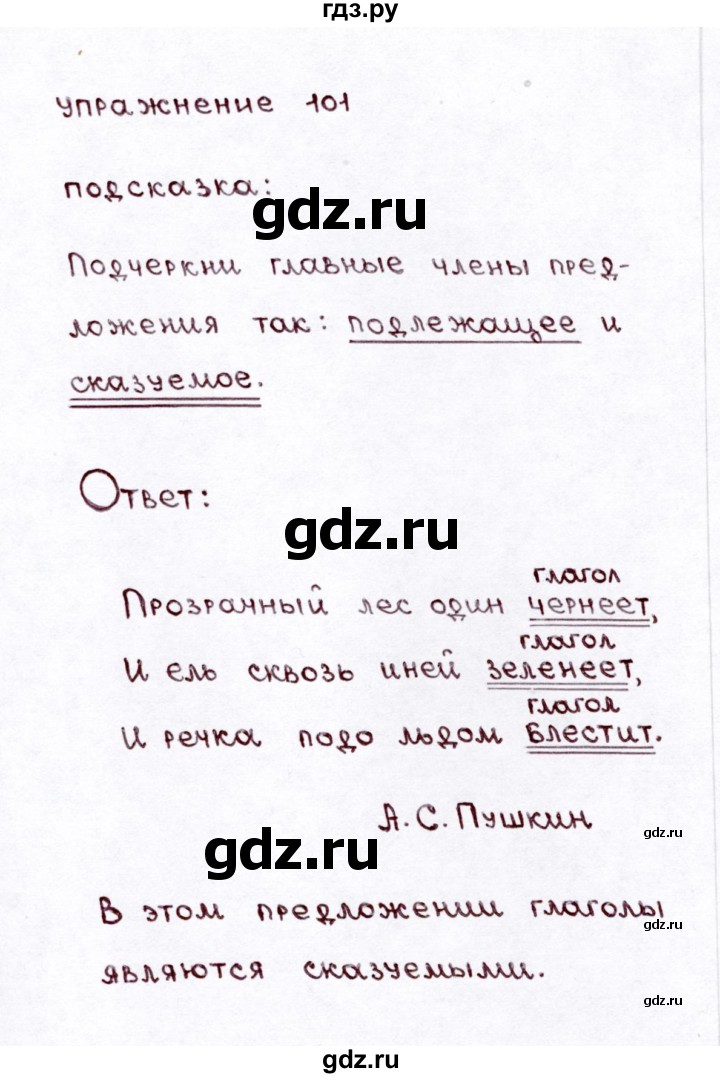 гдз.ру
упражнение 101
подсказка:
gdz.ru
Подчеркни главные члены пред-
ложения так: подлежащее и
сказуемое.
Ответ:
gdz.ru
глагол
Прозрачный лес один чернеет,
глагол
И ель сквозь иней зеленеет,
глагол
И речка подо льдом блестит.
А.С. Пушкин
gdz.ru
gdz.ru
В этом предложении глаголы
gdz.ru
являются сказуемыми.
gdz.ru
gdz.ru